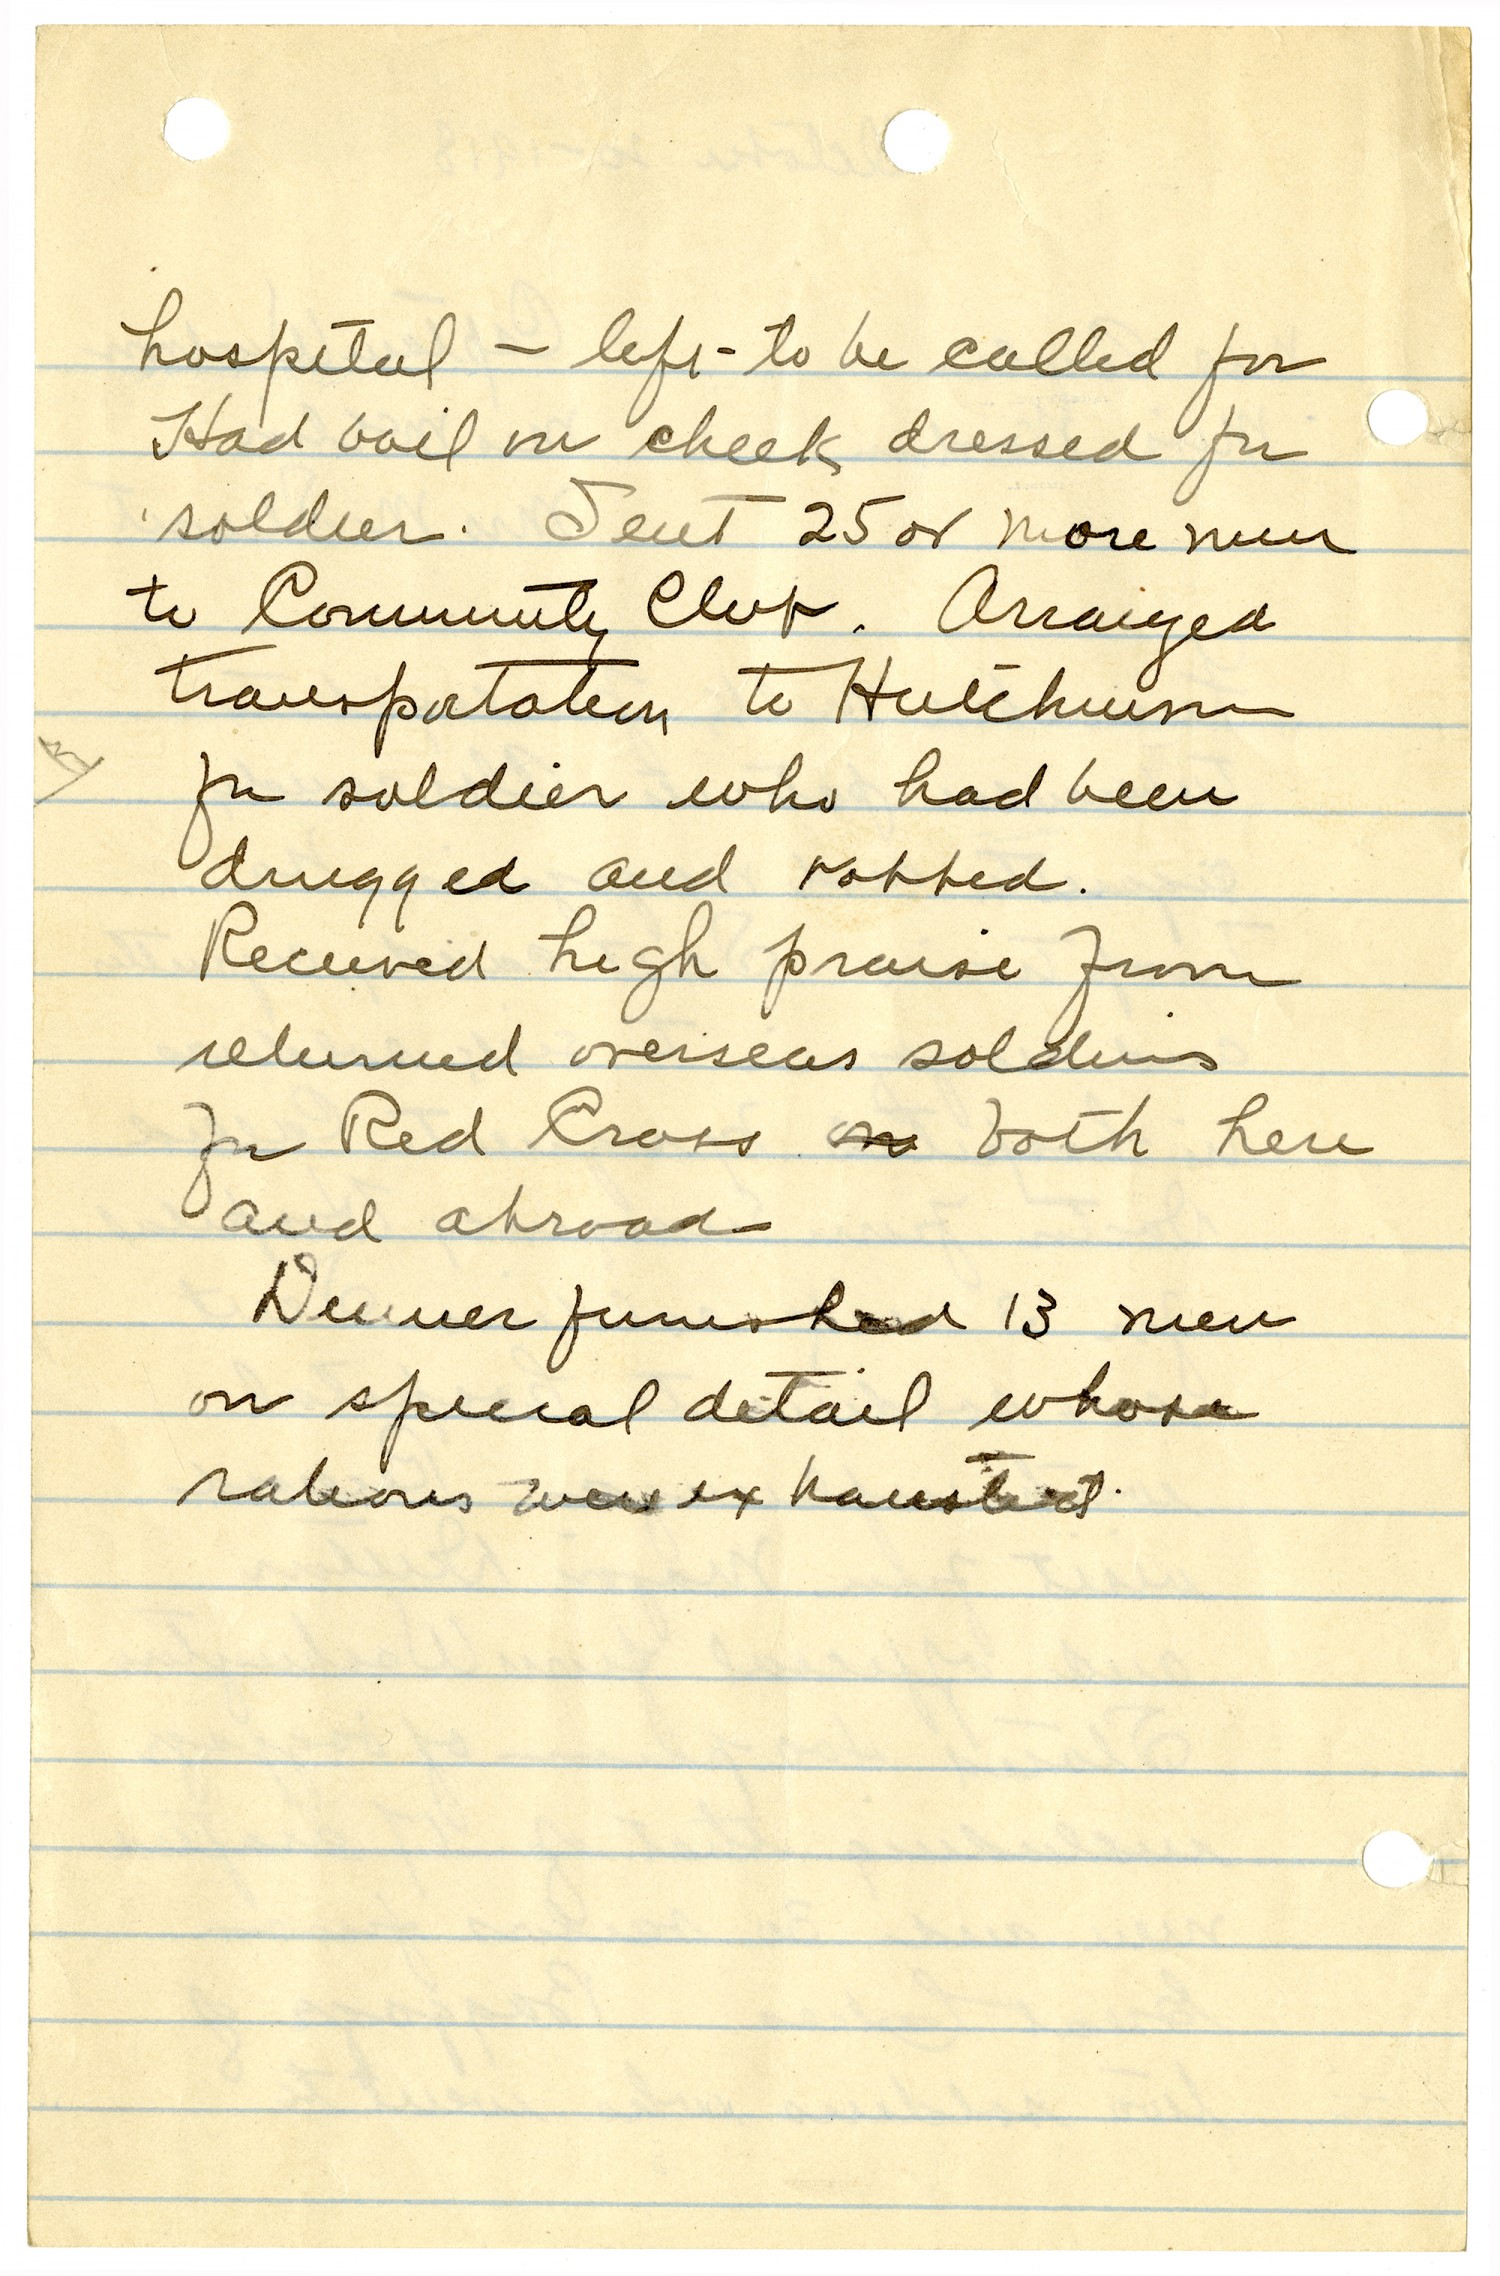 hospital – left - to be called for
Had boil on cheek dressed for
soldier. Sent 25 or more men
to Community Club. Arranged
transportation to Hutchinson
for soldier who had been
drugged and robbed.
Received high praise from
returned overseas soldiers
for Red Cross on both here
and abroad
Dinner furnished 13 men
on special detail whose
rations were exhausted.